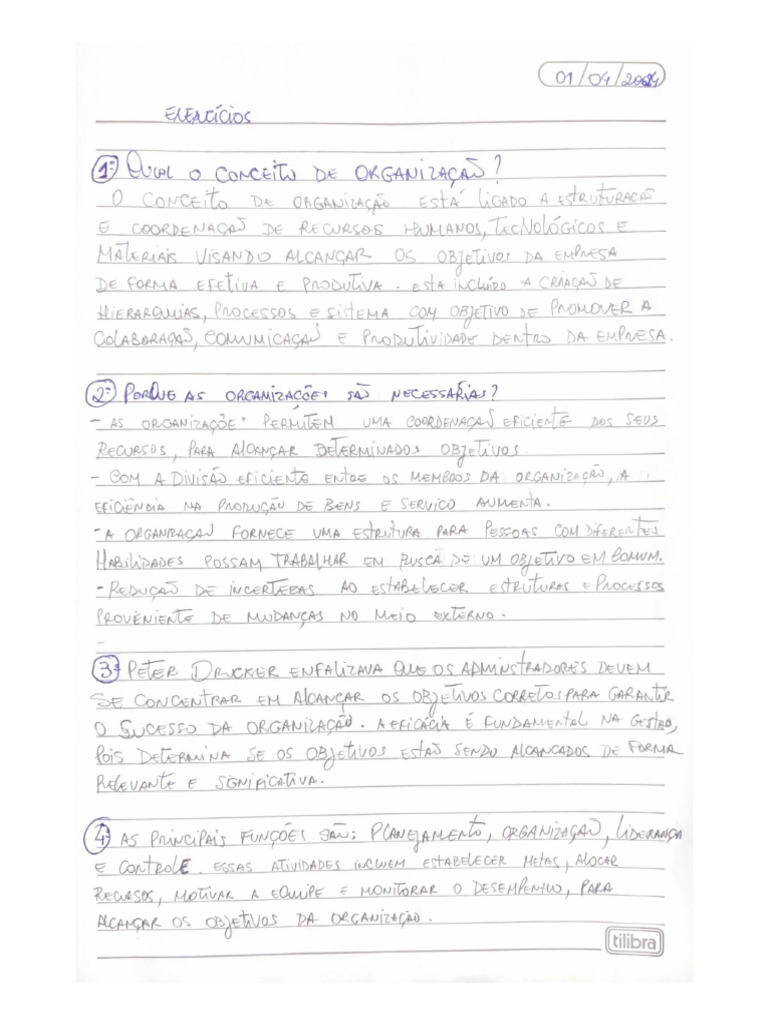 01/04/2024
EXERCÍCIOS
1ª QUAL O CONCEITO DE ORGANIZAÇÃO?
O CONCEITO DE ORGANIZAÇÃO ESTÁ LIGADO A ESTRUTURAÇÃO
E COORDENAÇÃO DE RECURSOS HUMANOS, TECNOLÓGICOS E
MATERIAIS VISANDO ALCANÇAR OS OBJETIVOS DA EMPRESA
DE FORMA EFETIVA E PRODUTIVA. ESTA INCLUÍDO A CRIAÇÃO DE
HIERARQUIAS, PROCESSOS E SISTEMA COM OBJETIVO DE PROMOVER A
COLABORAÇÃO, COMUNICAÇÃO E PRODUTIVIDADE DENTRO DA EMPRESA.
2ª PORQUE AS ORGANIZAÇÕES SÃO NECESSÁRIAS?
- AS ORGANIZAÇÕES PERMITEM UMA COORDENAÇÃO EFICIENTE DOS SEUS
RECURSOS, PARA ALCANÇAR DETERMINADOS OBJETIVOS.
- COM A DIVISÃO EFICIENTE ENTRE OS MEMBROS DA ORGANIZAÇÃO, A
EFICIÊNCIA NA PRODUÇÃO DE BENS E SERVIÇO AUMENTA.
- A ORGANIZAÇÃO FORNECE UMA ESTRUTURA PARA PESSOAS COM DIFERENTES
HABILIDADES POSSAM TRABALHAR EM BUSCA DE UM OBJETIVO EM COMUM.
- REDUÇÃO DE INCERTEZAS AO ESTABELECER ESTRUTURAS E PROCESSOS
PROVENIENTE DE MUDANÇAS NO MEIO EXTERNO.
-
3ª PETER DRUCKER ENFALIZAVA QUE OS ADMINSTRADORES DEVEM
SE CONCENTRAR EM ALCANÇAR OS OBJETIVOS CORRETOS PARA GARANTIR
O SUCESSO DA ORGANIZAÇÃO. A EFICÁCIA É FUNDAMENTAL NA GESTÃO,
POIS DETERMINA SE OS OBJETIVOS ESTÃO SENDO ALCANCADOS DE FORMA
RELEVANTE E SIGNIFICATIVA.
4ª AS PRINCIPAIS FUNÇÕES SÃO: PLANEJAMENTO, ORGANIZAÇÃO, LIDERANÇA
E CONTROLE. ESSAS ATIVIDADES INCLUEM ESTABELECER METAS, ALOCAR
RECURSOS, MOTIVAR A EQUIPE E MONITORAR O DESEMPENHO, PARA
ALCANÇAR OS OBJETIVOS DA ORGANIZAÇÃO.
tilibra